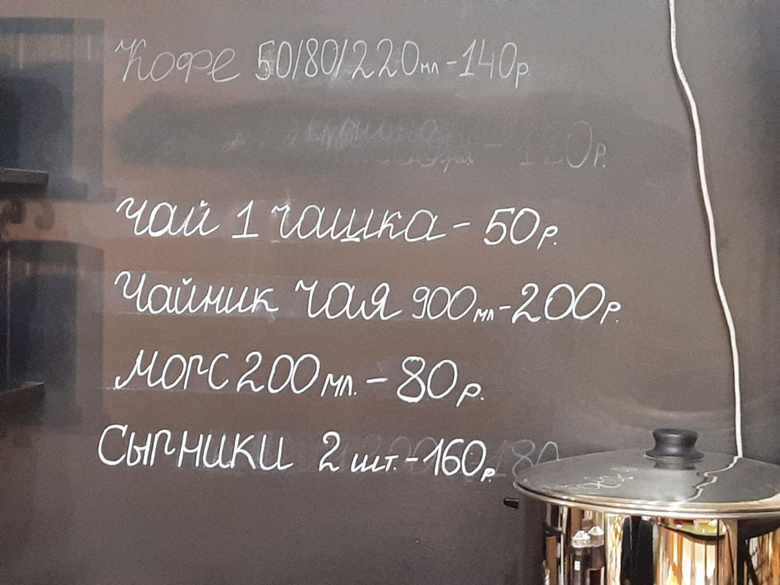 Кофе 50/80/220мл-140р.
-120р.
Чай 1 чашка- 50р.
Чайник чая 900мл-200р.
Морс 200мл.-80р.
Сырники 2шт.-160р.
180